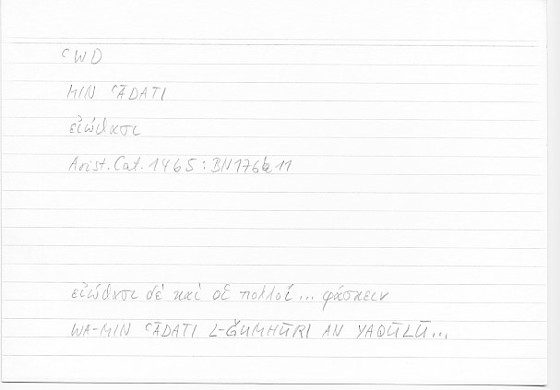 ʿWD
MIN ʿĀDATI
εἰώθασι
Arist. Cat. 14b5 : BN176b11
εἰώθασι δὲ καὶ οἱ πολλοί... φάσκειν
WA-MIN ʿĀDATI L-ǦUMHŪRI AN YAQŪLŪ...